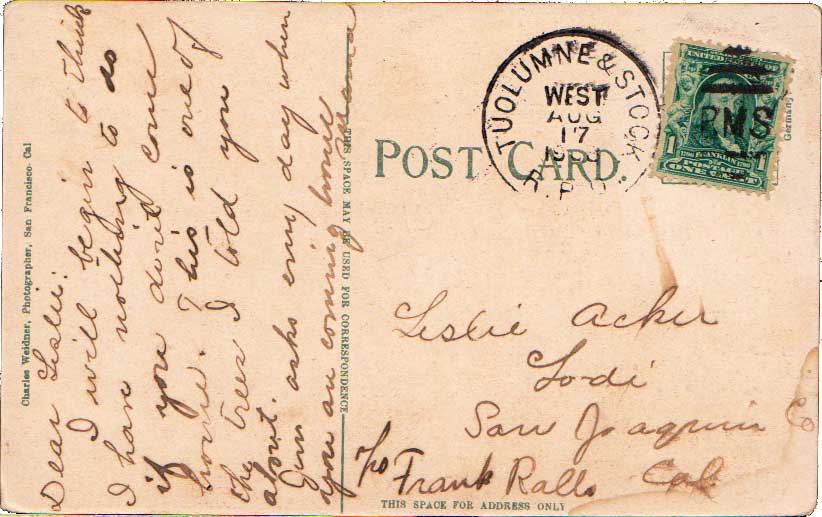 Charles Weidner, Photographer, San Francisco Cal
Dear Leslie:
I will begin to think
I have nothing to do
if you dont come
home. This is one of
the trees I told you
about.
Jim asks every day when
you are coming home
Mama
THIS SPACE MAY BE USED FOR CORRESPONDENCE
POST CARD.
TUOLUMNE & STOCK
WEST
AUG
17
R.P.O.
RMS
UNITED STATES
1
FRANKLIN
ONE CENT
Germany
Leslie Acker
Lodi
San Joaquin Co
Cal.
c/o Frank Ralls
THIS SPACE FOR ADDRESS ONLY